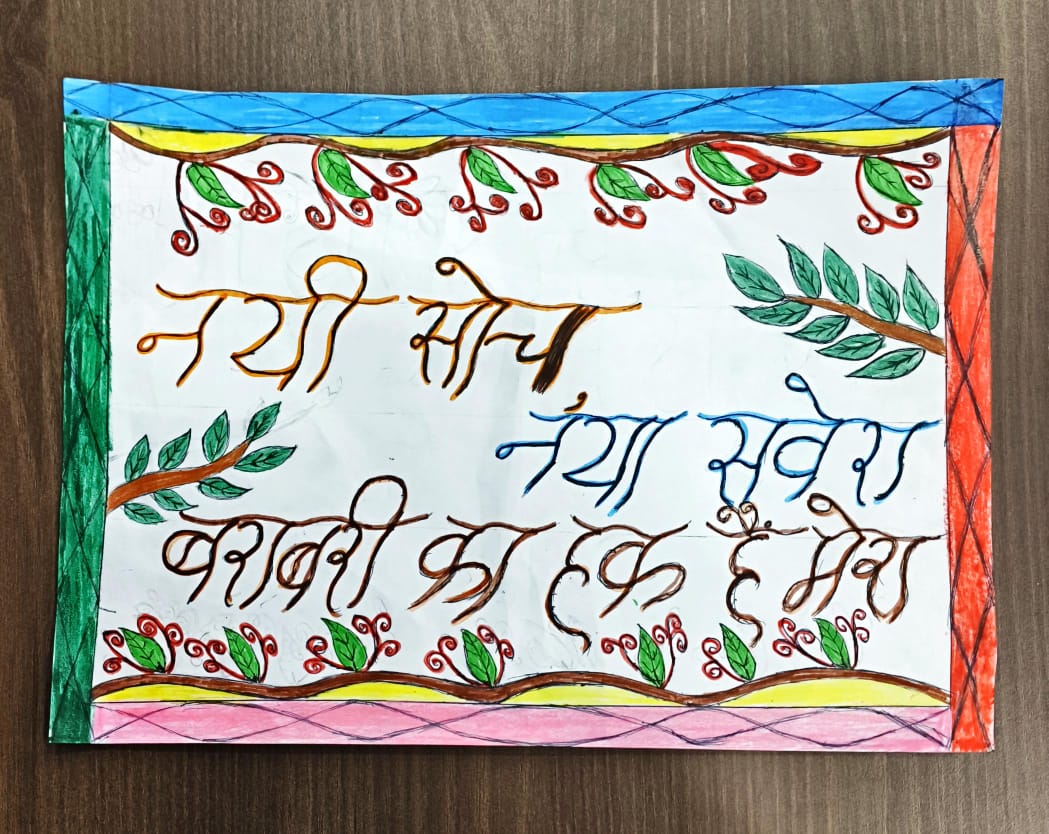 नयी सोच
नया सवेरा
बराबरी का हक है मेरा